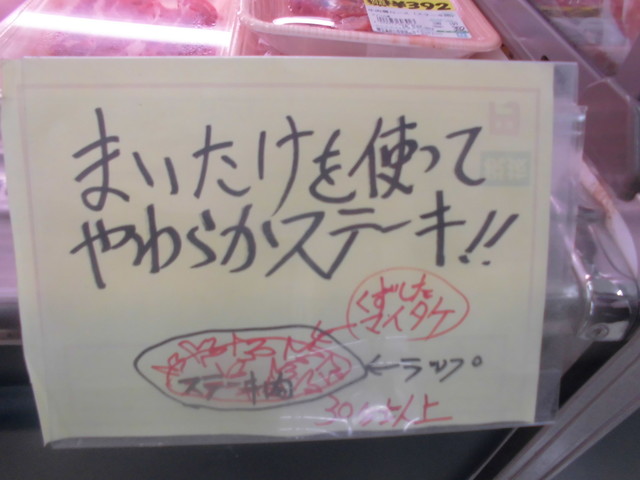 ¥392
まいたけを使って
やわらかステーキ!!
くずした
マイタケ
ステーキ肉
←ラップ。
30分以上